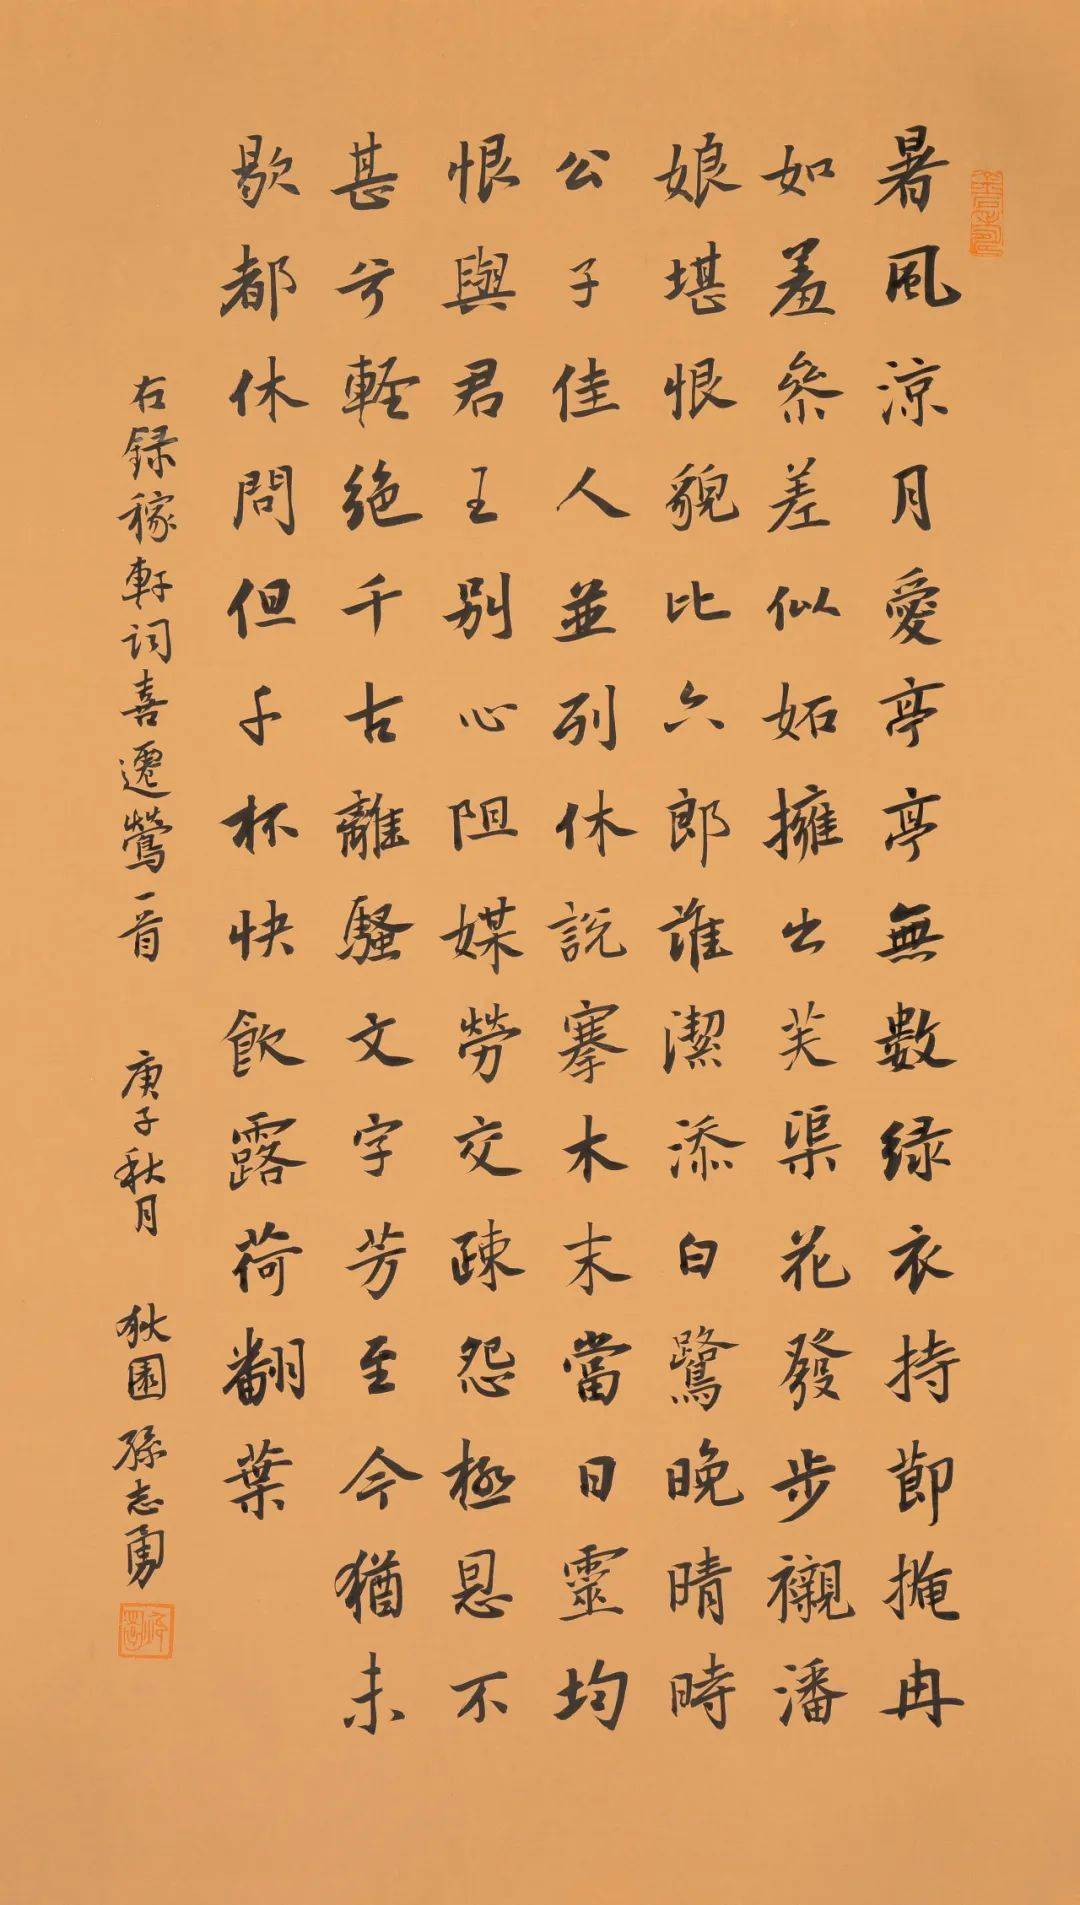 暑風涼月愛亭亭無數绿衣持節掩冉
如羞叅差似妬擁出芙渠花發步襯潘
娘堪恨貌比六郎誰潔添白鷺晚晴時
公子佳人並列休説搴木末當日靈均
恨與君王别心阻媒勞交疎怨極恩不
甚兮輕绝千古離騷文字芳至今猶未
歇都休問但千杯快飲露荷翻葉
右録稼軒词喜遷鶯一首 庚子秋月 狄園孫志勇